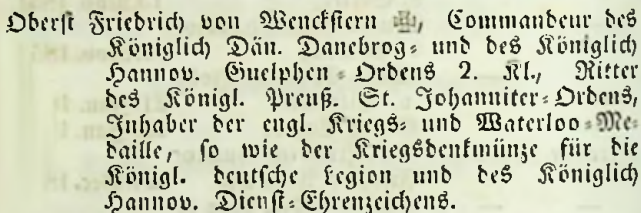 Oberst Friedrich von Wenckstern ✠, Commandeur des
Königlich Dän. Danebrog- und des Königlich
Hannov. Guelphen-Ordens 2. Kl., Ritter
des Königl. Preuß. St. Johanniter-Ordens,
Inhaber der engl. Kriegs- und Waterloo-Me-
daille, so wie der Kriegsdenkmünze für die
Königl. deutsche Legion und des Königlich
Hannov. Dienst-Ehrenzeichens.